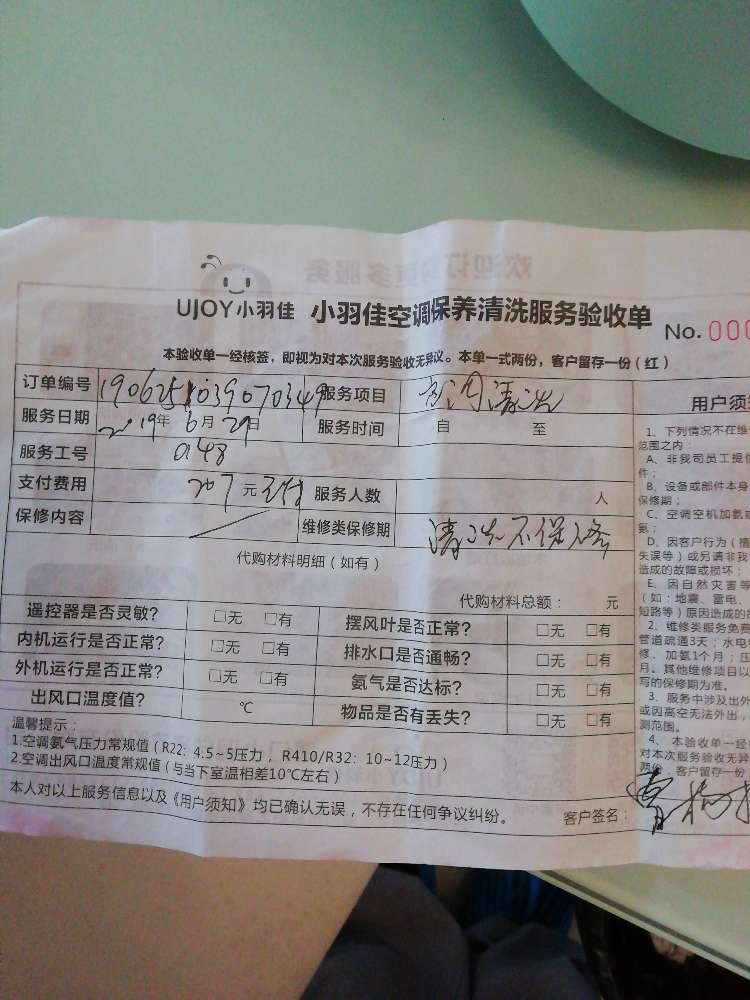 欢迎订购更多服务
UJOY小羽佳 小羽佳空调保养清洗服务验收单
No. 000
本验收单一经核签，即视为对本次服务验收无异议。本单一式两份，客户留存一份（红）
订单编号 1906251039070349 服务项目 清洗
服务日期 2019年6月29日 服务时间 自 至
服务工号 0148
支付费用 207元 服务人数 人
保修内容 维修类保修期 清洗不保修
代购材料明细（如有）
代购材料总额： 元
遥控器是否灵敏？ □无 □有 摆风叶是否正常？ □无 □有
内机运行是否正常？ □无 □有 排水口是否通畅？ □无 □有
外机运行是否正常？ □无 □有 氨气是否达标？ □无 □有
出风口温度值？ ℃ 物品是否有丢失？ □无 □有
温馨提示：
1.空调氨气压力常规值（R22: 4.5~5压力，R410/R32: 10~12压力）
2.空调出风口温度常规值（与当下室温相差10℃左右）
本人对以上服务信息以及《用户须知》均已确认无误，不存在任何争议纠纷。 客户签名：
用户须
1、下列情况不在维
范围之内：
A、非我司员工提
件；
B、设备或部件本身
保修期；
C、空调空机加氨
氨；
D、因客户行为（
失误等）或另请非我
造成的故障或损坏；
E、因自然灾害等
（如：地震、雷电、
短路等）原因造成的
2、维修类服务免费
管道疏通3天；水电
修、加氨1个月；压
月。其他维修项目以
写的保修期为准。
3、服务中涉及出外
或因高空无法外出，
测范围。
4、本验收单一经
对本次服务验收无异
两份，客户留存一